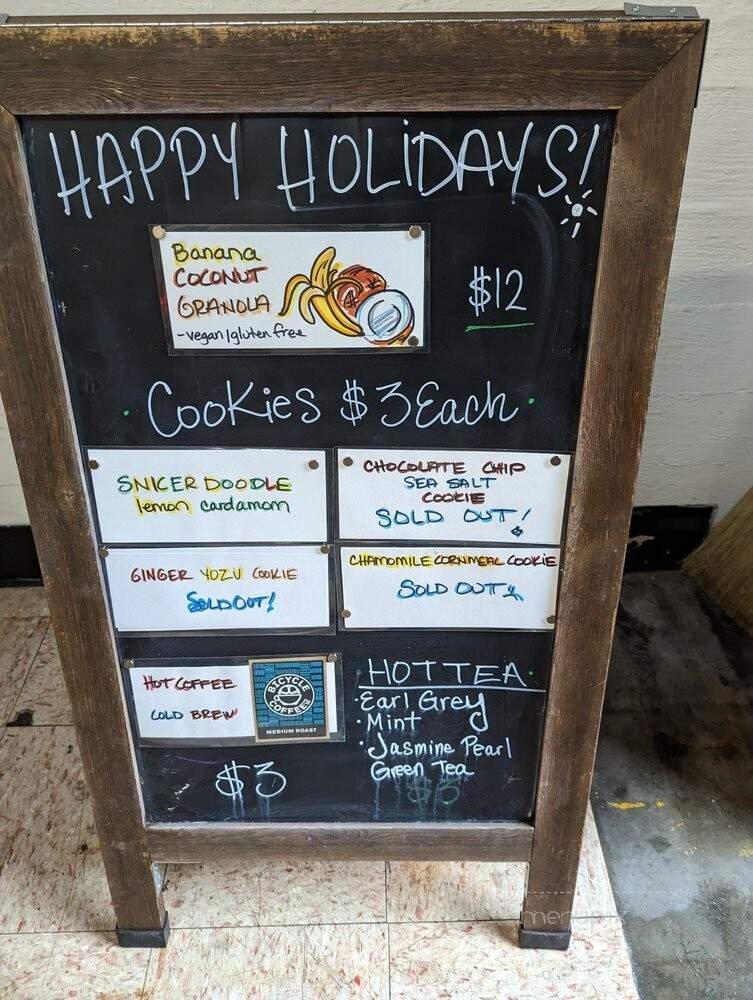 HAPPY HOLIDAYS!
Banana
COCONUT
GRANOLA
-vegan/gluten free
$12
· Cookies $3 Each ·
SNICER DOODLE
lemon cardamom
CHOCOLATE CHIP
SEA SALT
COOKIE
SOLD OUT!
GINGER YUZU COOKIE
SOLD OUT!
CHAMOMILE CORNMEAL COOKIE
SOLD OUT!
HOT COFFEE
COLD BREW
BICYCLE
COFFEE
MEDIUM ROAST
$3
HOT TEA
· Earl Grey
· Mint
· Jasmine Pearl
Green Tea
$3